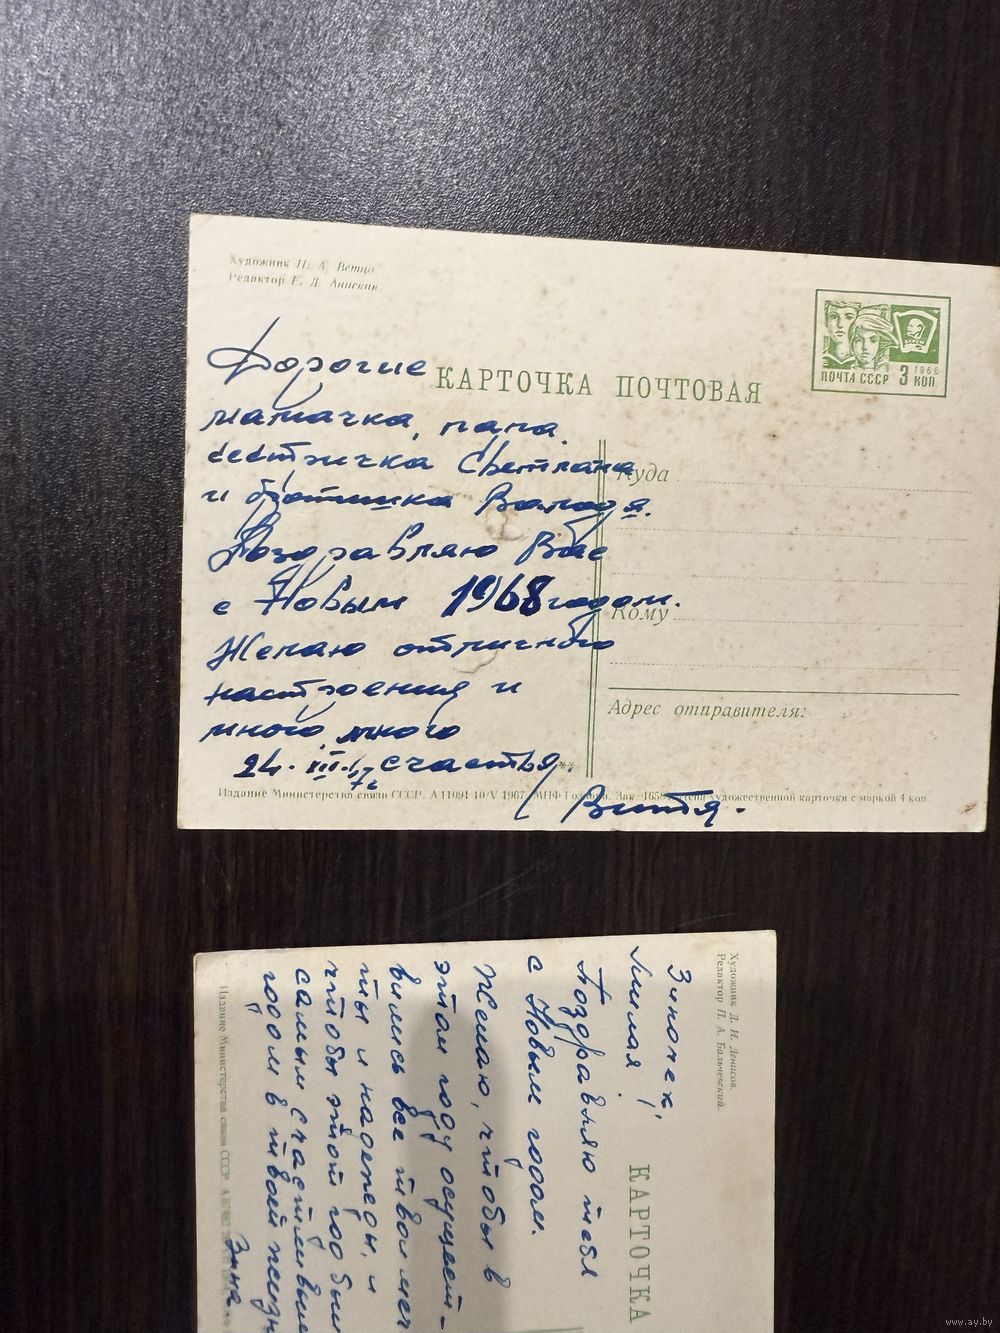 Художник И. А. Ветцо.
Редактор Е. Д. Анискин.
ПОЧТА СССР 3 КОП
1966
КАРТОЧКА ПОЧТОВАЯ
Дорогие
мамачка, папа.
сестричка Светлана
и братишка Володя.
Поздравляю Вас
с Новым 1968 годом.
Желаю отличного
настроения и
много, много
24. XII. счастья.
Витя.
Куда
Кому
Адрес отправителя:
Издание Министерства связи СССР. А 11091 10/V 1967. МПФ Гознака. Зак. художественной карточки с маркой 4 коп
Художник Д. И. Денисов.
Редактор П. А. Бальчевский.
КАРТОЧКА
Зиночек,
милая!
Поздравляю тебя
с Новым годом.
Желаю, чтобы в
этом году осущест-
вились все твои меч
ты и надежды, и
чтобы этот год был
самым счастливым
годом в твоей жизн
Зина
Издание Министерства связи СССР
www.ay.by